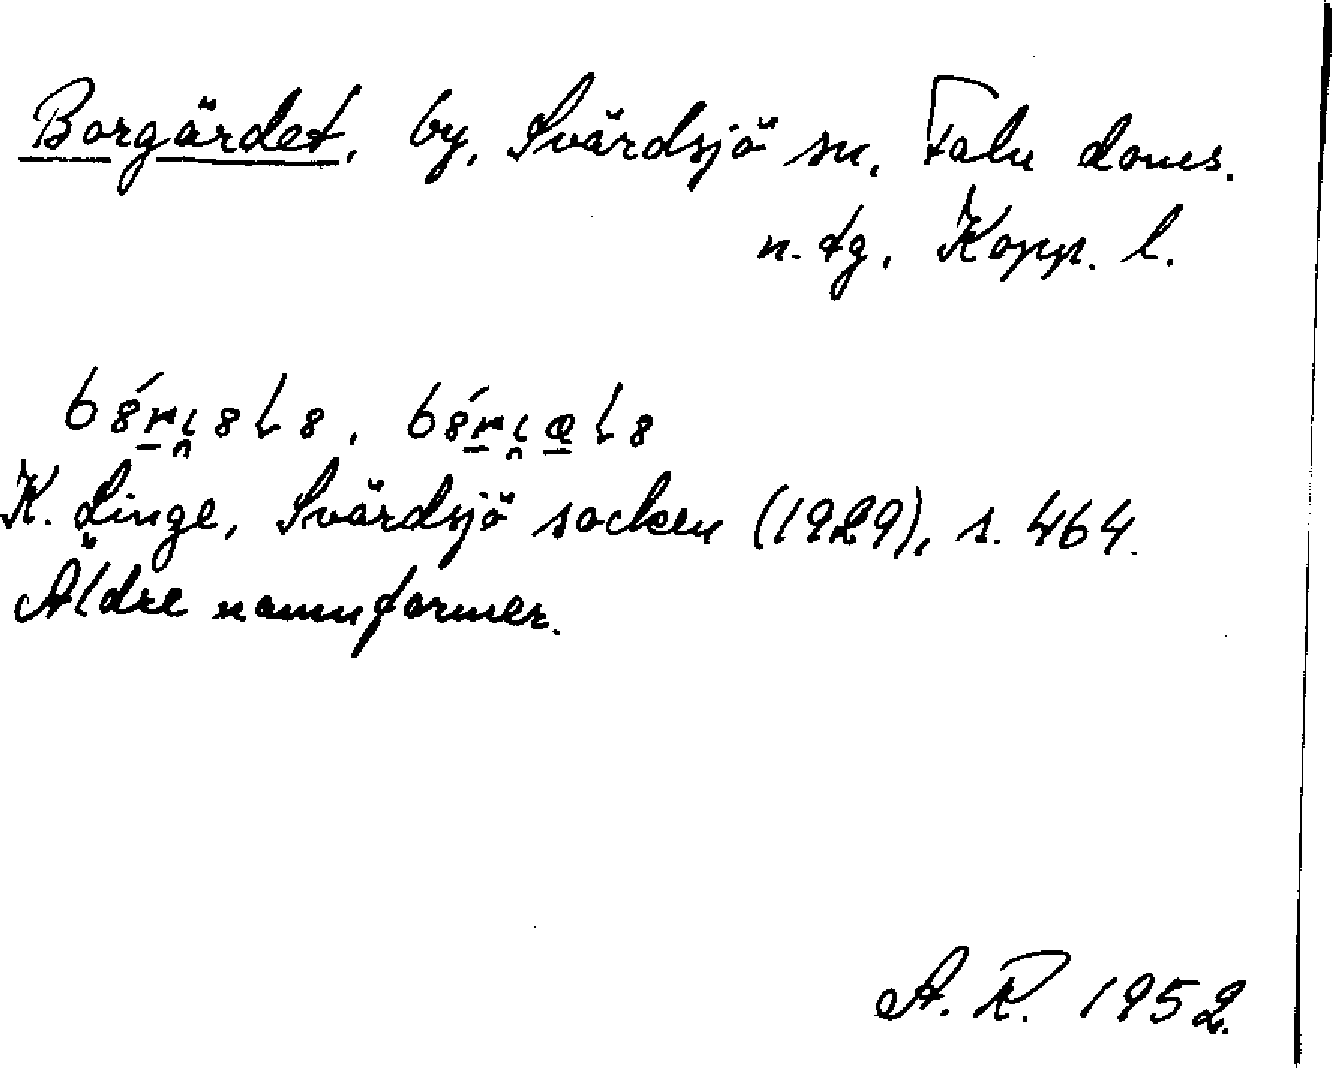 Borgärdet, by, Svärdsjö sn, Falu doms.
n. tg, Kopp. l.
K. Linge, Svärdsjö socken (1929), s. 464.
Äldre namnformer.
A. R. 1952.